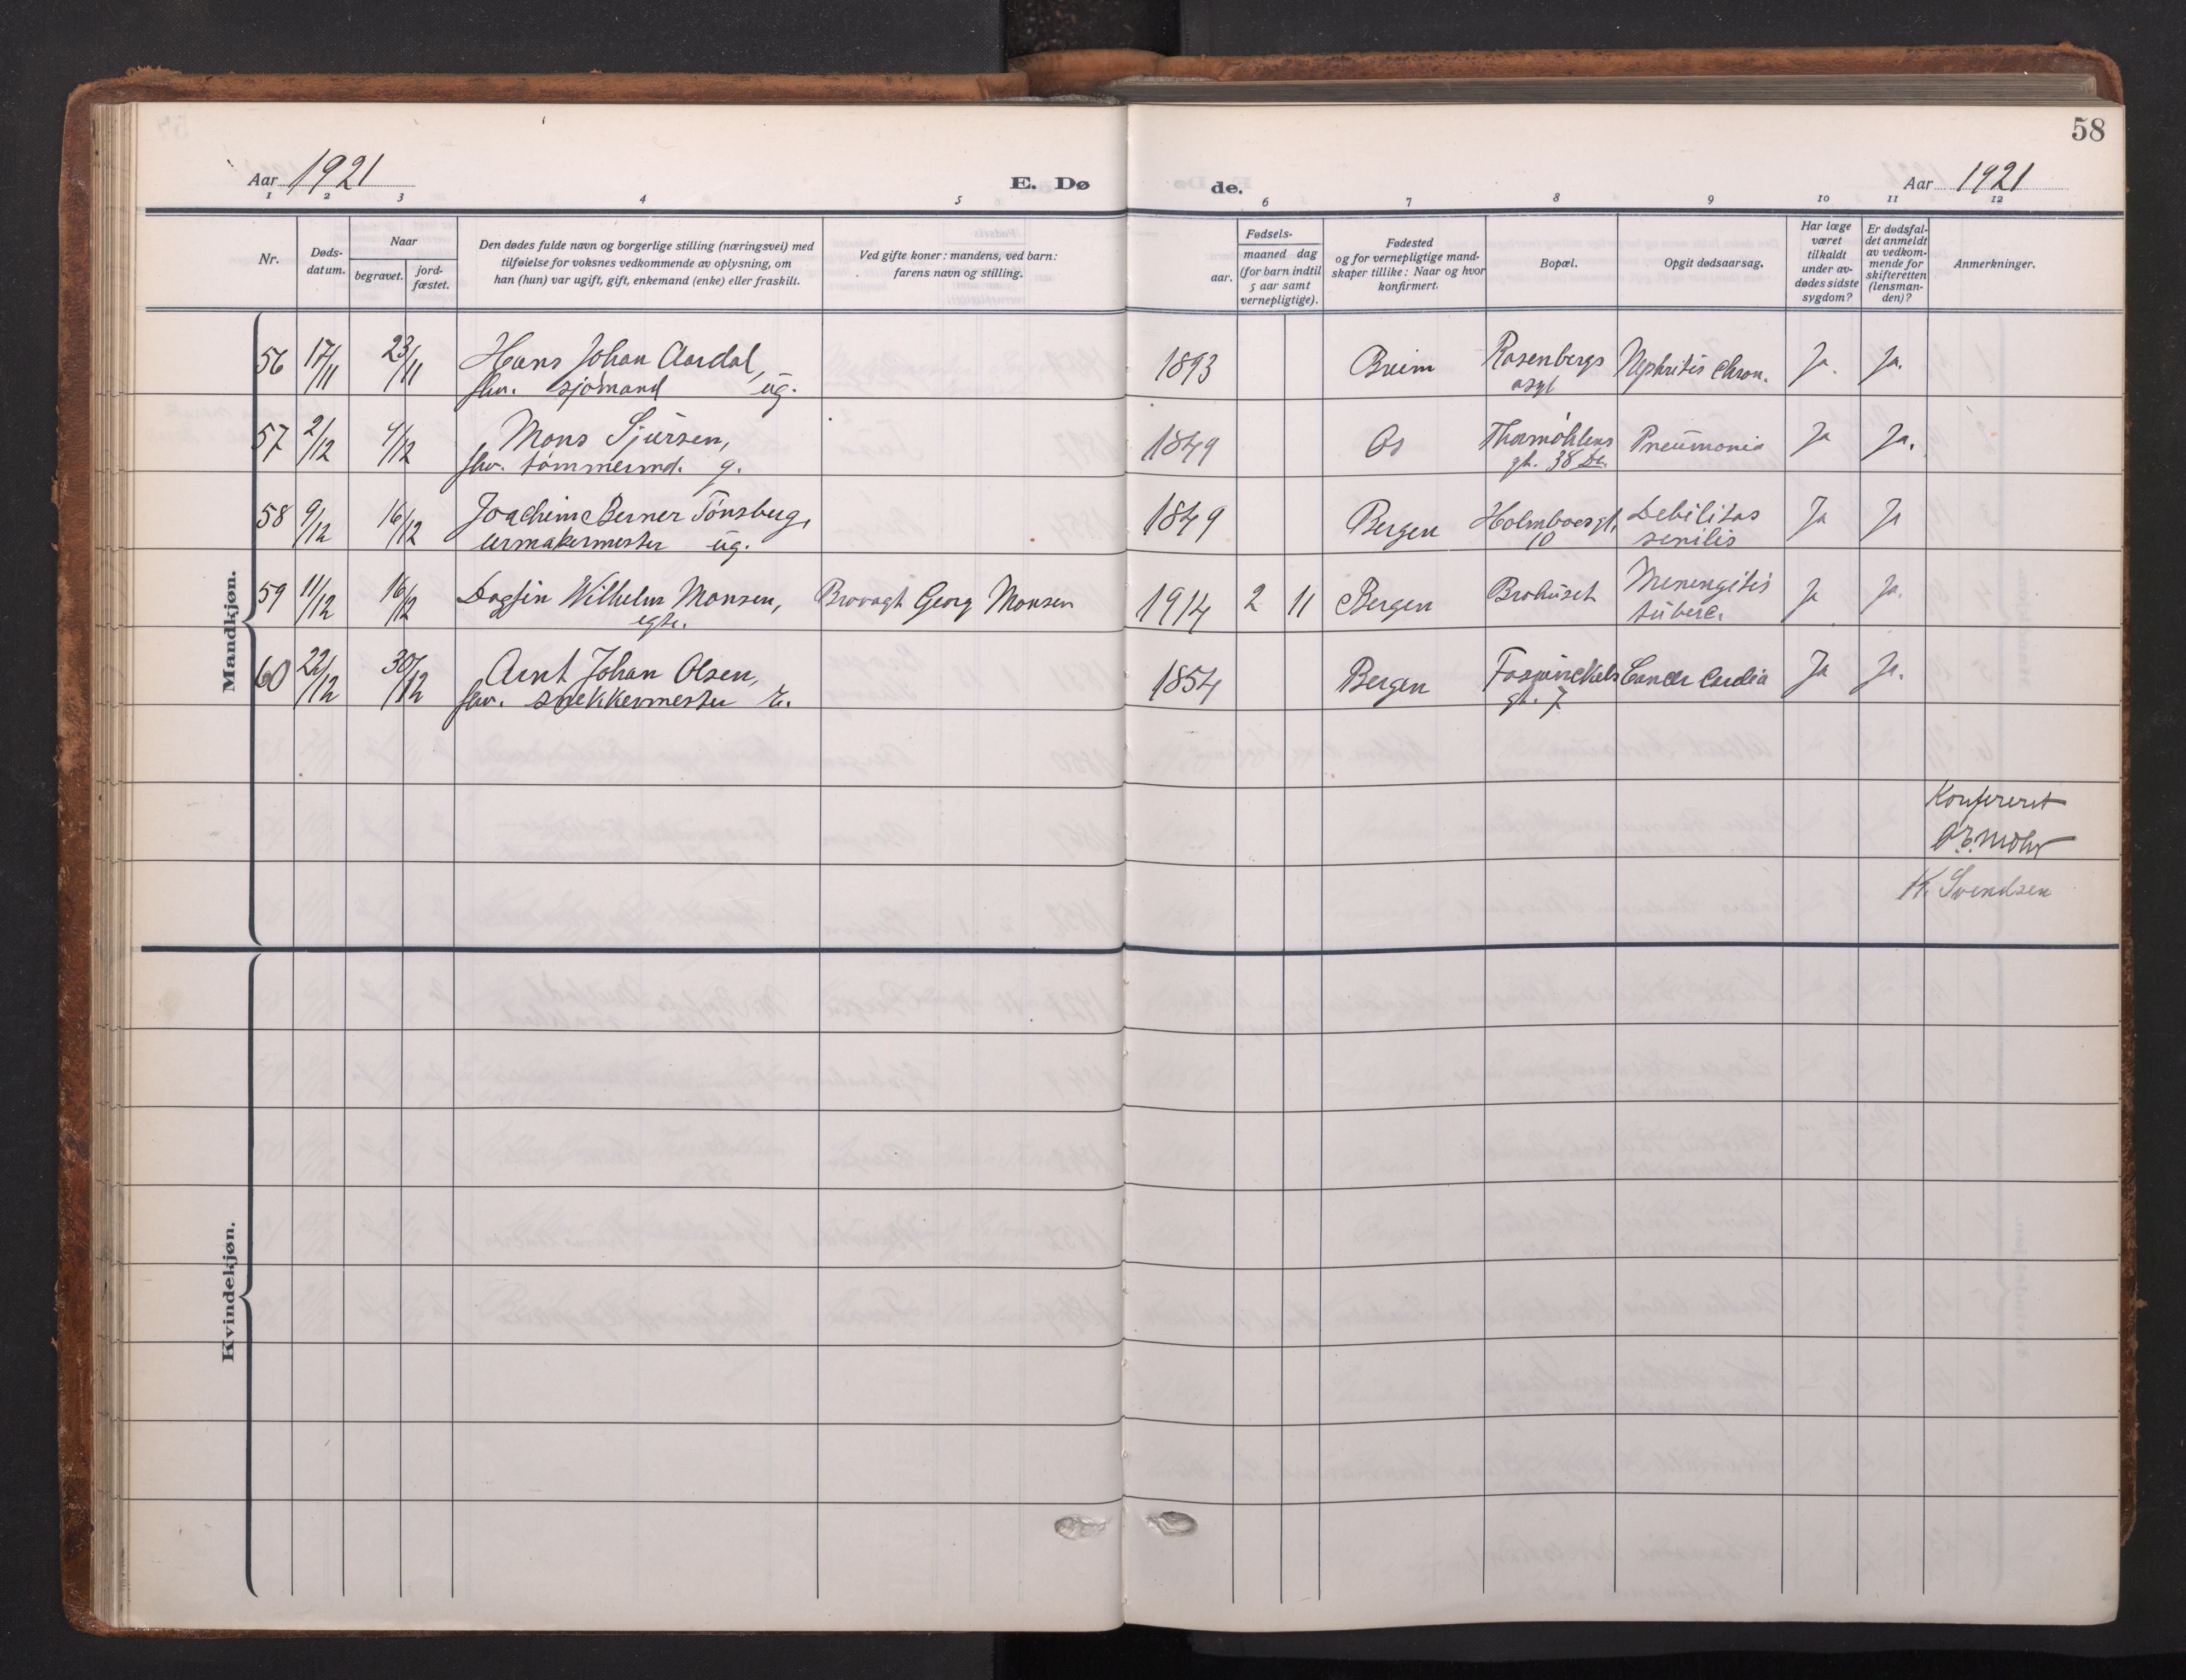 58
Aar 1921
E. Dø
de.
Aar 1921
1 2 3 4 5 6 7 8 9 10 11 12
Nr.
Døds-
datum.
Naar
begravet.
jord-
fæstet.
Den dødes fulde navn og borgerlige stilling (næringsvei) med
tilføielse for voksnes vedkommende av oplysning, om
han (hun) var ugift, gift, enkemand (enke) eller fraskilt.
Ved gifte koner: mandens, ved barn:
farens navn og stilling.
Fødsels-
aar.
maaned dag
(for barn indtil
5 aar samt
vernepligtige).
Fødested
og for vernepligtige mand-
skaper tillike: Naar og hvor
konfirmert.
Bopæl.
Opgit dødsaarsag.
Har læge
været
tilkaldt
under av-
dødes sidste
sygdom?
Er dødsfal-
det anmeldt
av vedkom-
mende for
skifteretten
(lensman-
den)?
Anmerkninger.
Mandkjøn.
56 17/11 23/11 Hans Johan Aardal, 1893 Breim Rosenbergs Nephritis chron. Ja. Ja.
fhv. sjømand ug. asyl
57 2/12 7/12 Mons Sjursen, 1849 Os Thormøhlens Pneumonia Ja Ja.
fhv. tømmermd. g. gt. 38
58 9/12 16/12 Joachim Berner Tønsberg, 1849 Bergen Holmboesgt. Debilitas Ja Ja
urmakermester ug. 10 senilis
59 11/12 16/12 Dagfin Wilhelm Monsen, Brovagt Georg Monsen 1914 2 11 Bergen Brohuset Menengitis Ja Ja.
egte. tuberc.
60 22/12 30/12 Arnt Johan Olsen, 1854 Bergen Foswinckels Cancer Cardia Ja Ja.
fhv. snekkermester E. gt. 7
Konfereret
Mohr
K. Svendsen
Kvindekjøn.